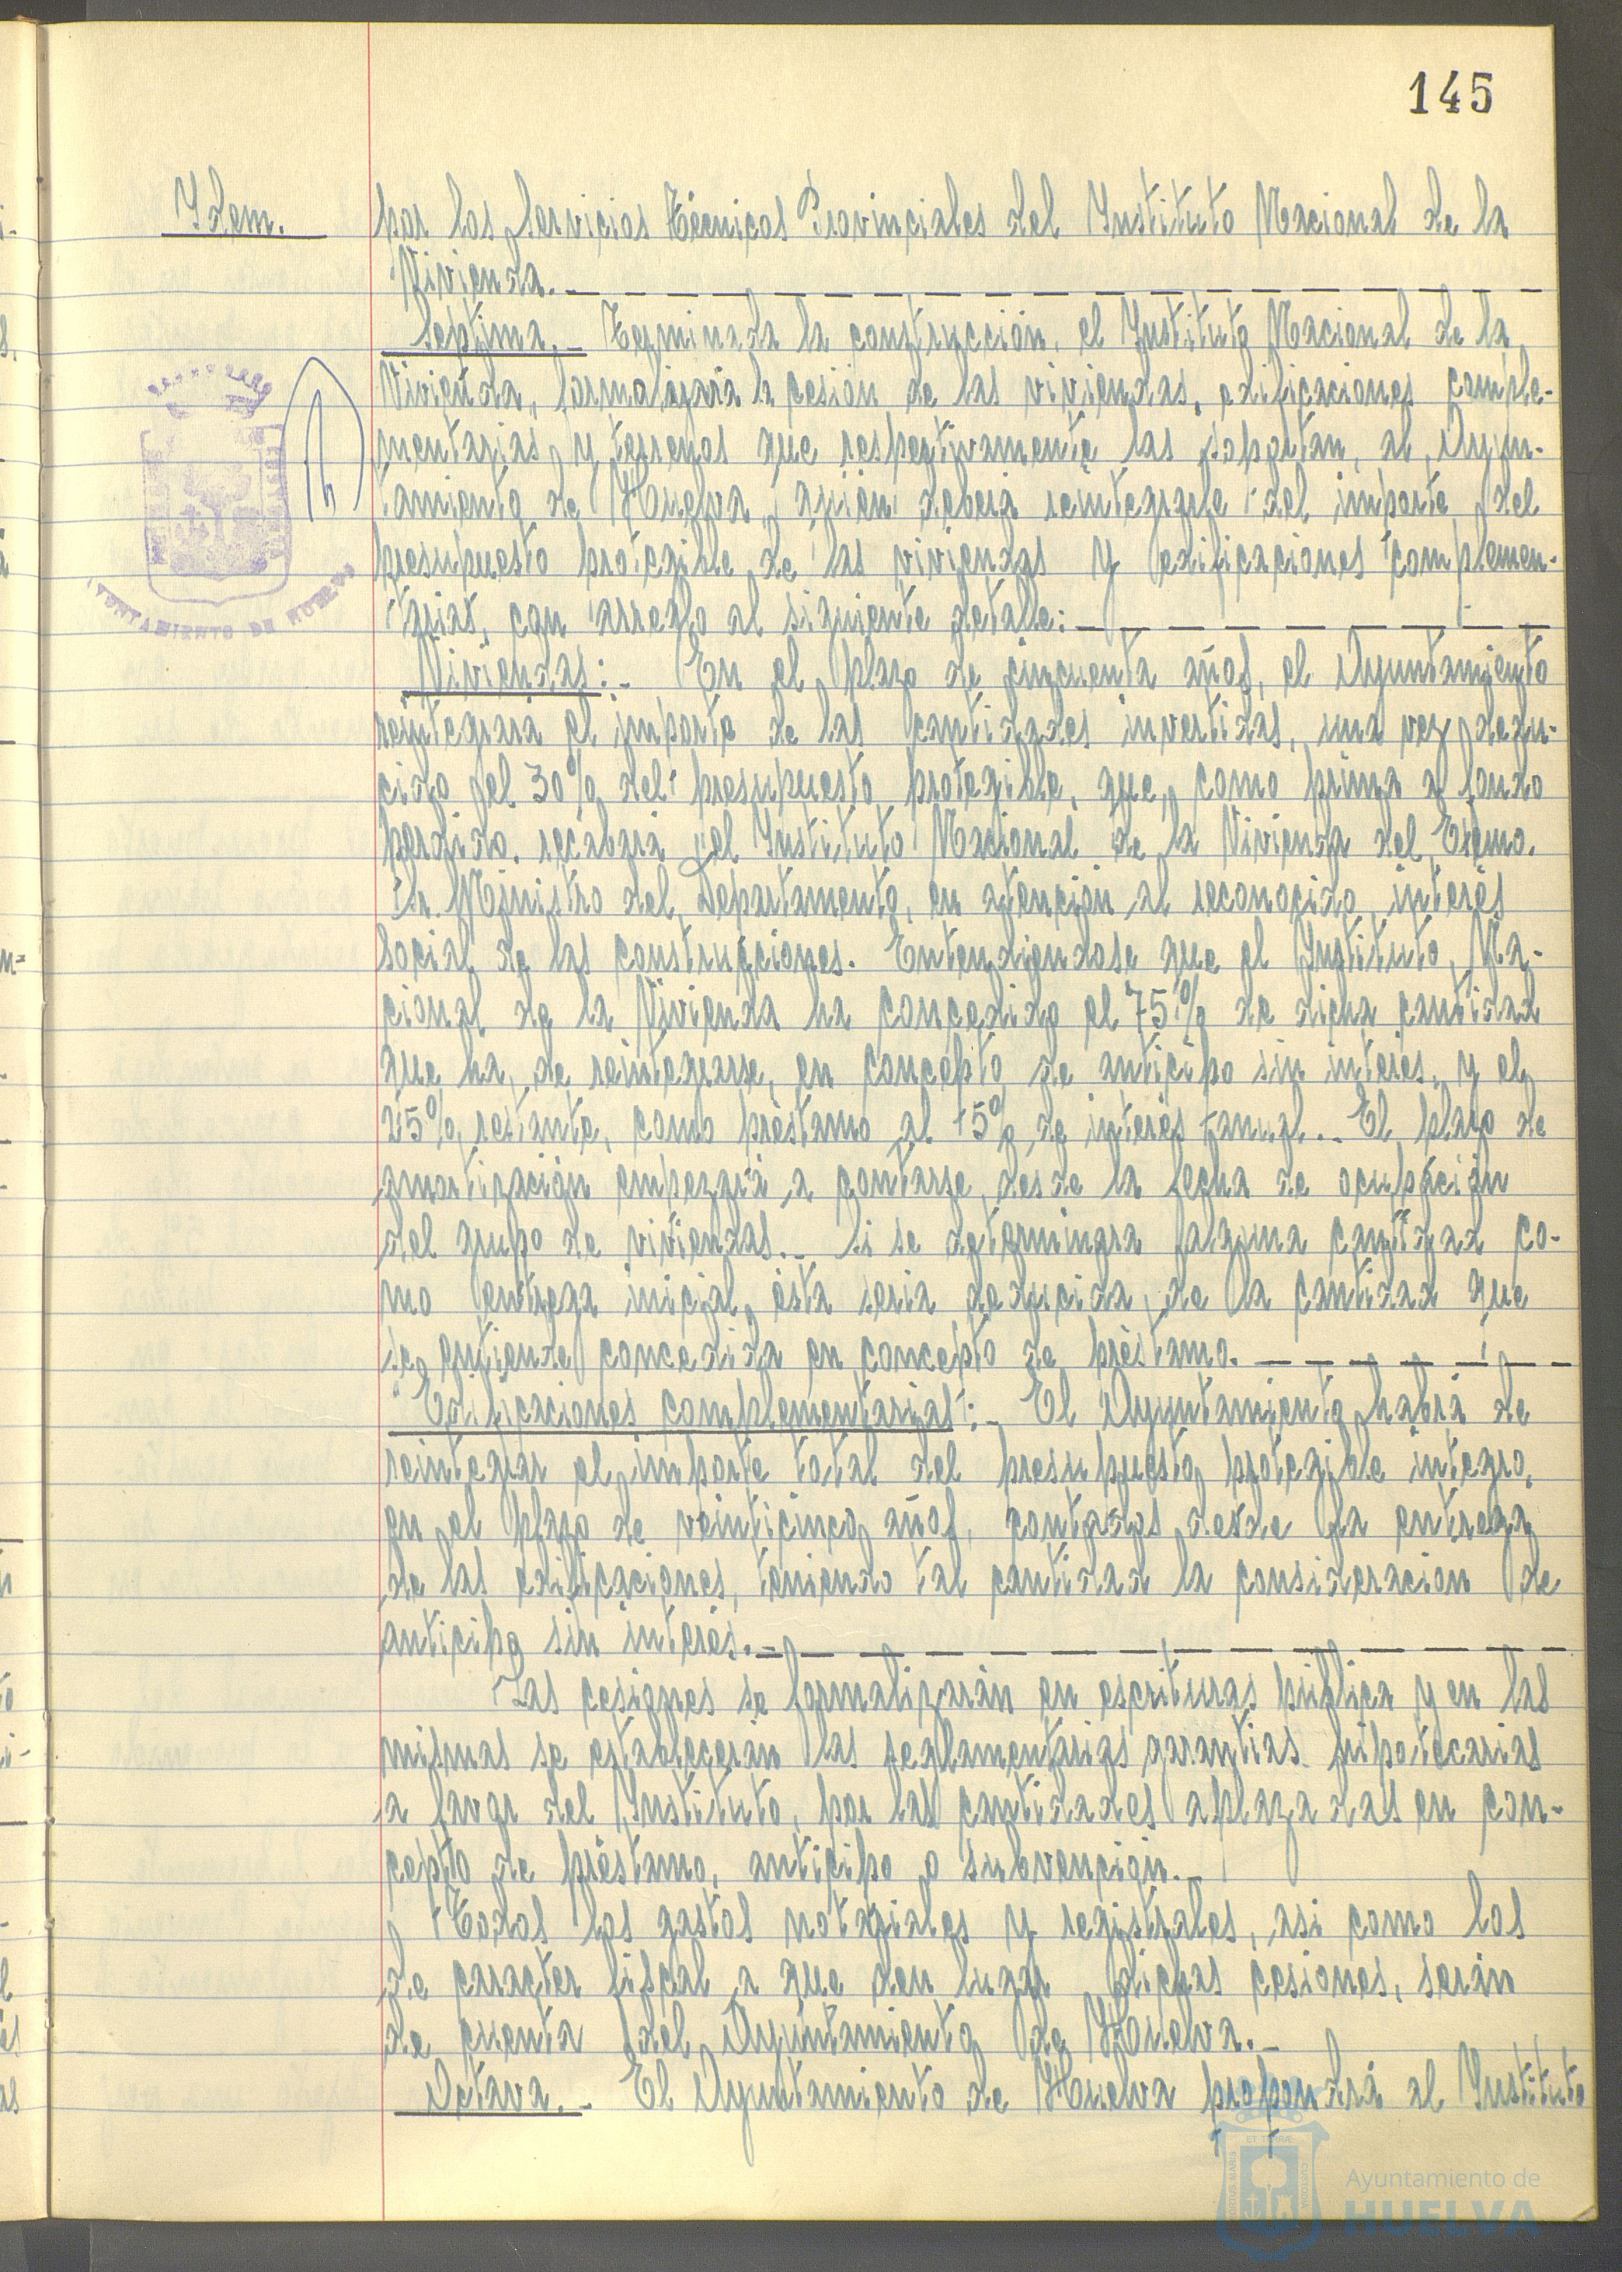 145
Idem.
por los Servicios Técnicos Provinciales del Instituto Nacional de la
Vivienda.-
Séptima.- Terminada la construcción, el Instituto Nacional de la
Vivienda, formalizará la cesión de las viviendas, edificaciones comple-
mentarias y terrenos que respectivamente las soportan, al Ayun-
tamiento de Huelva, quién deberá reintegrarle del importe del
presupuesto protegible de las viviendas y edificaciones complemen-
tarias, con arreglo al siguiente detalle:
Viviendas:- En el plazo de cincuenta años, el Ayuntamiento
reintegrará el importe de las cantidades invertidas, una vez dedu-
cido el 30% del presupuesto protegible, que, como prima a fondo
perdido, recabará el Instituto Nacional de la Vivienda del Excmo.
Sr. Ministro del Departamento, en atención al reconocido interés
social de las construcciones. Entendiendose que el Instituto Na-
cional de la Vivienda ha concedido el 75% de dicha cantidad
que ha de reintegrarse, en concepto de anticipo sin interés, y el
25% restante, como préstamo al 5% de interés anual.- El plazo de
amortización empezará a contarse desde la fecha de ocupación
del grupo de viviendas.- Si se determinara alguna cantidad co-
mo entrega inicial, ésta seria deducida de la cantidad que
se entiende concedida en concepto de préstamo.
Edificaciones complementarias:- El Ayuntamiento habrá de
reintegrar el importe total del presupuesto protegible integro,
en el plazo de veinticinco años, contados desde la entrega
de las edificaciones, teniendo tal cantidad la consideracion de
anticipo sin interés.-
Las cesiones se formalizarán en escrituras pública y en las
mismas se establecerán las reglamentarias garantias hipotecarias
a favor del Instituto, por las cantidades aplazadas en con-
cepto de préstamo, anticipo o subvención.-
Todos los gastos notariales y registrales, asi como los
de caracter fiscal a que den lugar dichas cesiones, serán
de cuenta del Ayuntamiento de Huelva.-
Octava.- El Ayuntamiento de Huelva propondrá al Instituto
AYUNTAMIENTO DE HUELVA
Ayuntamiento de
HUELVA